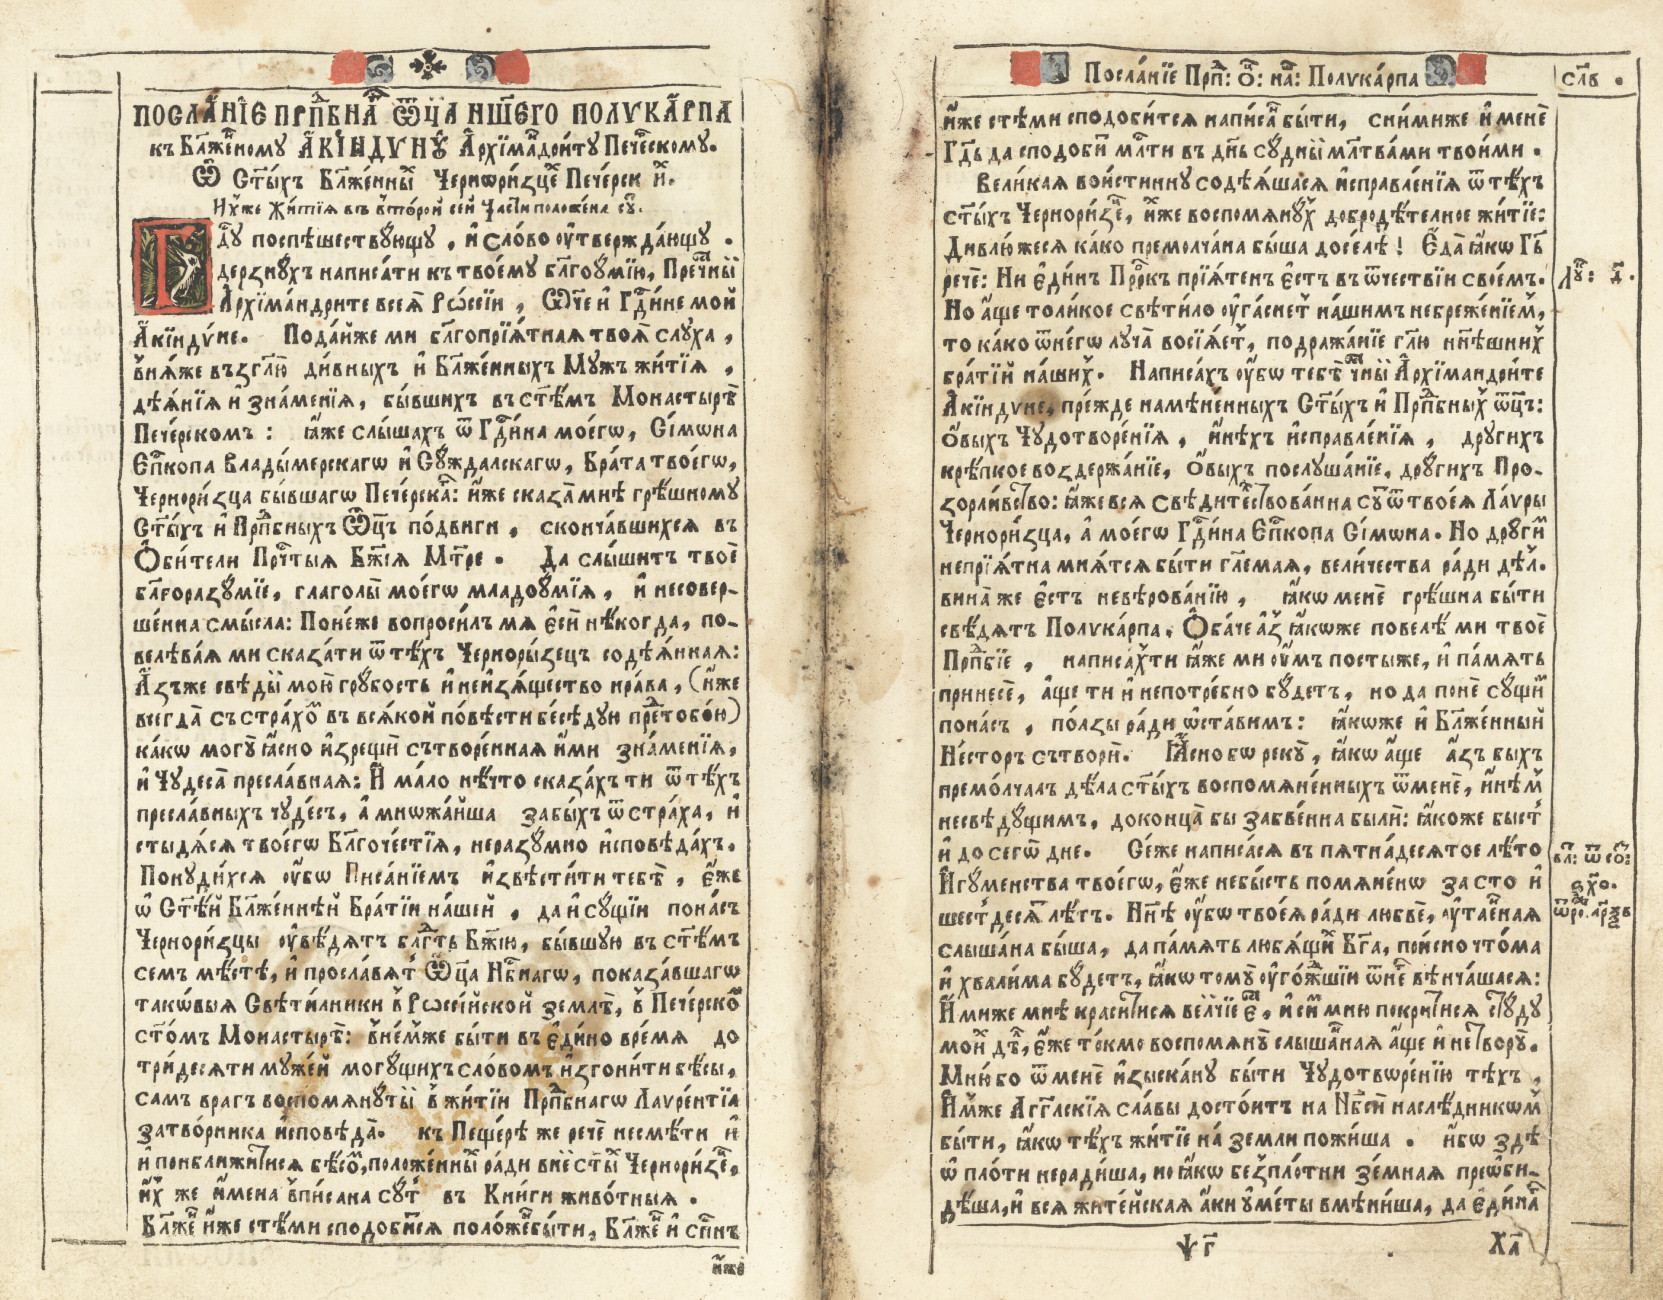 ПОСЛА́НЇЕ ПРПⷣБНАГⷢ Ѿц҃А НШ҃ЕГО ПОЛУКА́РПА
къ Блаⷤеⷩ҇ному А҆КІ́НДѴНꙊ А҆рхїмаⷩдри́ту Печеⷬскому.
Ѿ Ст҃ы́хъ Блаже́нныⷯ Чернори́зцеⷡ Пече́рски иⷯ.
И҆́хже Житїѧ въ вто́рой сей Части положе́на суⷮ.
Гдⷭ҇ꙋ поспѣшествꙋ́ющꙋ, и҆ сло́во оу҆твержда́ющꙋ.
дерзнꙋ́хъ написа́ти къ твоемꙋ̀ бл҃гоꙋ́мїю, Пречⷭ҇тны́й
А҆рхїма́ндрите всеѧ̀ Рѡсе́їи, Ѿч҃е и҆ Гдⷭ҇и́не мой
А҆кїндѵ́не. Пода́йже ми бл҃гопрїѧ́тнаѧ твоѧ̀ слꙋха,
в̾нѧ́же възгл҃ю ди́вныхъ и҆ Бл҃же́нныхъ Мꙋжъ житїѧ̀,
дѣѧ́нїѧ и҆ зна́менїѧ, бы́вшихъ въ ст҃ѣ́мъ Монастырѣ̀
Пече́рскомъ: ꙗ҆́же слышахъ ѿ Гдⷭ҇и́на моегѡ̀, Сі́мѡна
Еп҇ⷭкопа Влады́мерскагѡ и҆ Сꙋ́ждалскагѡ, Бра́та твоегѡ̀,
Черноризца бы́вшагѡ Пече́рскаⷢ: и҆́же сказа̀ мнѣ грѣ́шномꙋ
Ст҃ы́хъ и҆ Прпⷣбныхъ Ѿц҃ъ по́двиги, сконча́вшихсѧ въ
Ѻ҆би́тели Прчⷭ҇тыѧ Бж҃їѧ Мт҃ре. Да слы́шитъ твоѐ
бл҃горазꙋ́мїе, глаголы̀ моегѡ̀ младоꙋ́мїѧ, и҆ несовер-
ше́нна смы́сла: Поне́же вопроси́лъ мѧ є҆сѝ нѣ́когда, по-
велѣва́ѧ ми сказа́ти ѿ тѣ́хъ Чернорызецъ содѣ́ѧннаѧ:
А҆́зъже свѣ́дый мою̀ грꙋ́бость и҆ неизѧ́щество нра́ва, (и҆́же
всегда̀ съ стра́хоⷨ въ всѧ́кой по́вѣсти бе́сѣдꙋю преⷣ тобо́ю)
ка́кѡ могꙋ̀ ꙗ҆сно и҆зрещѝ сътворе́ннаѧ и҆́ми зна́менїѧ,
и҆ Чꙋдеса̀ пресла́внаѧ: И҆ ма́ло нѣ́что сказа́хъ ти ѿ тѣ́хъ
пресла́вныхъ чꙋде́съ, а҆ мнѡжа́йша забы́хъ ѿ стра́ха, и҆
стыдѧ́сѧ твоегѡ̀ Бл҃гоче́стїѧ, неразꙋ́мно и҆сповѣ́дахъ.
Понꙋди́хсѧ оу҆́бѡ Писа́нїемъ и҆звѣсти́ти тебѣ̀, є҆́же
ѡ҆ Ст҃ѣ́й Бл҃же́ннѣй Бра́тїи на́шей, да и҆ сꙋ́щїи по на́съ
Черноризцы оу҆вѣ́дѧтъ бл҃года́ть Бж҃їю, бы́вшꙋю въ ст҃ѣ́мъ
семъ мѣ́стѣ, и҆ просла́вѧт Ѿц҃а Нбⷭ҇нагѡ, показа́вшагѡ
такѡ́выѧ Свѣти́лники в̾ Рѡссі́йской землѣ̀, в̾ Пече́рскоⷨ
ст҃о́мъ Монастырѣ̀: в̾не́мже бы́ти въ є҆ди́но вре́мѧ до
три́десѧти мꙋже́й могꙋ́щихъ сло́вомъ и҆згони́ти бѣ́сы,
самъ врагъ воспомѧнꙋ́тый в̾ житїи Прпⷣбнагѡ Лаѵре́нтїа
затво́рника и҆сповѣ́да. къ Пеще́рѣ же речѐ несмѣ́ти и҆
и҆ приближи́тисѧ бѣсо́ⷨ, положе́нныⷯ ра́ди в̾не́ ст҃ыⷯ Черноризеⷰ,
и҆́хже и҆́мена в̾писана сꙋ́т въ Кни́ги живо́тныѧ.
Бл҃жеⷩ и҆́же стѣ́ми сподоби́сѧ положеⷩ бы́ти, Бл҃жеⷩ и҆ сп҃снъ
и҆́же
Посла́нїе Прпⷣ: Ѻ҃: на: Полѵка́рпа
сл҃в.
и҆́же стѣ́ми сподоби́тсѧ написаⷩ бы́ти, сни́миже и҆ менѐ
Гдⷭ҇ь да сподоби́т мл҃ти въ дн҃ь сꙋ́дный мл҃твами твои́ми.
Вели́каѧ вои́стиннꙋ содѣ́ѧшасѧ и҆справле́нїѧ ѿ тѣ́хъ
ст҃ы́хъ Чернори́зеⷰ, и҆́хже воспомѧнꙋ́х добродѣ́телное житїе:
Дивлю́жесѧ ка́ко премолча́на бы́ша досе́лѣ! Є҆да̀ ꙗ҆́кѡ Гдⷭ҇ь
речѐ: Ни є҆ди́нъ Прⷪ҇ркъ прїѧ́тенъ є҆́стъ въ ѿчествїи свое́мъ.
Лꙋⷦ: д҃.
Но а҆́ще толи́кое свѣти́ло оу҆га́снет на́шимъ небреже́нїем,
то ка́ко ѿ него̀ лꙋча̀ восїѧ́ет, подража́нїе гл҃ю нн҃ѣшних
бра́тїй на́ших. Написа́хъ оу҆́бѡ тебѣ̀ чⷭ҇тный А҆рхїмандри́те
А҆кїндѵ́не, пре́жде намѣне́нныхъ Ст҃ы́хъ и҆ Прпⷣбных ѿц҃ъ:
ѻ҆́выхъ Чꙋдотворе́нїѧ, и҆нѣ́хъ и҆справле́нїѧ, дрꙋги́хъ
крѣ́пкое воздержа́нїе, ѻ҆́выхъ послꙋша́нїе, дрꙋги́хъ Про-
зорли́вство: ꙗ҆́же всѧ Свѣди́телствованна сꙋ́т ѿ твоеѧ̀ Ла́ѵры
Чернори́зца, а҆ моегѡ̀ Гдⷭ҇и́на Еп҇ⷭкопа Сі́мѡна. Но дрꙋги́м
неприѧ́тна мнѧ́тсѧ бы́ти гл҃емаѧ, вели́чества ра́ди дѣ́л.
вина̀ же є҆́стъ невѣ́рованїю, ꙗ҆́кѡ менѐ грѣ́шна бы́ти
свѣ́дѧтъ Полѵка́рпа. Ѻ҆ба́че а҆́з ꙗ҆́коже повелѣ́ ми твоѐ
Прпⷣбїе, написа́х ти ꙗ҆́же ми оу҆́мъ постыже, и҆ па́мѧть
принесѐ, а҆́ще ти и҆ непотре́бно бꙋ́детъ, но да понѐ сꙋ́щим
по на́съ, по́лзы ра́ди ѡ҆ста́вимъ: ꙗ҆́коже и҆ Бл҃же́нный
Не́сторъ сътворѝ. Ꙗ҆́сно бѡ рекꙋ̀, ꙗ҆́кѡ а҆́ще а҆́зъ быхъ
премолча́лъ дѣ́ла ст҃ы́хъ воспомѧне́нныхъ ѿ менѐ, и҆ нѣ́м
несвѣ́дꙋщимъ, доконца̀ бы забве́нна былѝ: ꙗ҆́коже быст
и҆ до сегѡ̀ дне. Се́же написа́сѧ въ пѧтна́десѧтое лѣ́то
вл҃: ѿ соⷥ:
И҆гꙋ́менства твоегѡ̀, є҆́же небысть помѧне́нѡ за сто и҆
шест десѧⷮ лѣ́тъ. Нн҃ѣ оу҆́бѡ твоеѧ̀ ра́ди любвѐ, оу҆тае́наѧ
слыша́на бы́ша, да па́мѧть любѧ́щиⷯ Бг҃а, при́сно что́ма
и҆ хвали́ма бꙋ́детъ, ꙗ҆́кѡ томꙋ̀ оу҆гожⷣшїи ѿ негⷢ вѣнча́шасѧ:
И҆́миже мнѣ краси́тисѧ ве́лїе єⷭ, и҆ си́м мню покры́тисѧ стꙋдꙋ
мои́х дѣⷧ, є҆́же то́кмо воспомѧнꙋ̀ слыша́наѧ а҆́ще и҆ нетворꙋ̀.
Мню́бо ѿ менѐ и҆зыска́нꙋ бы́ти Чꙋдотвѡре́нїю тѣхъ,
И҆́мже Агг҃лскїѧ сла́вы досто́итъ на Нб҃сѝ наслѣ́дникѡм
бы́ти, ꙗ҆́кѡ тѣхъ житїе на́ земли пожи́ша. и҆́бѡ здѣ
ѡ҆ пло́ти неради́ша, но ꙗ҆́кѡ безпло́тни зе́мнаѧ преѡби-
дѣша, и҆ всѧ жите́йскаѧ а҆́ки оу҆ме́ты вмѣни́ша, да є҆ди́наⷢ
Ѱг҃
Хл҃